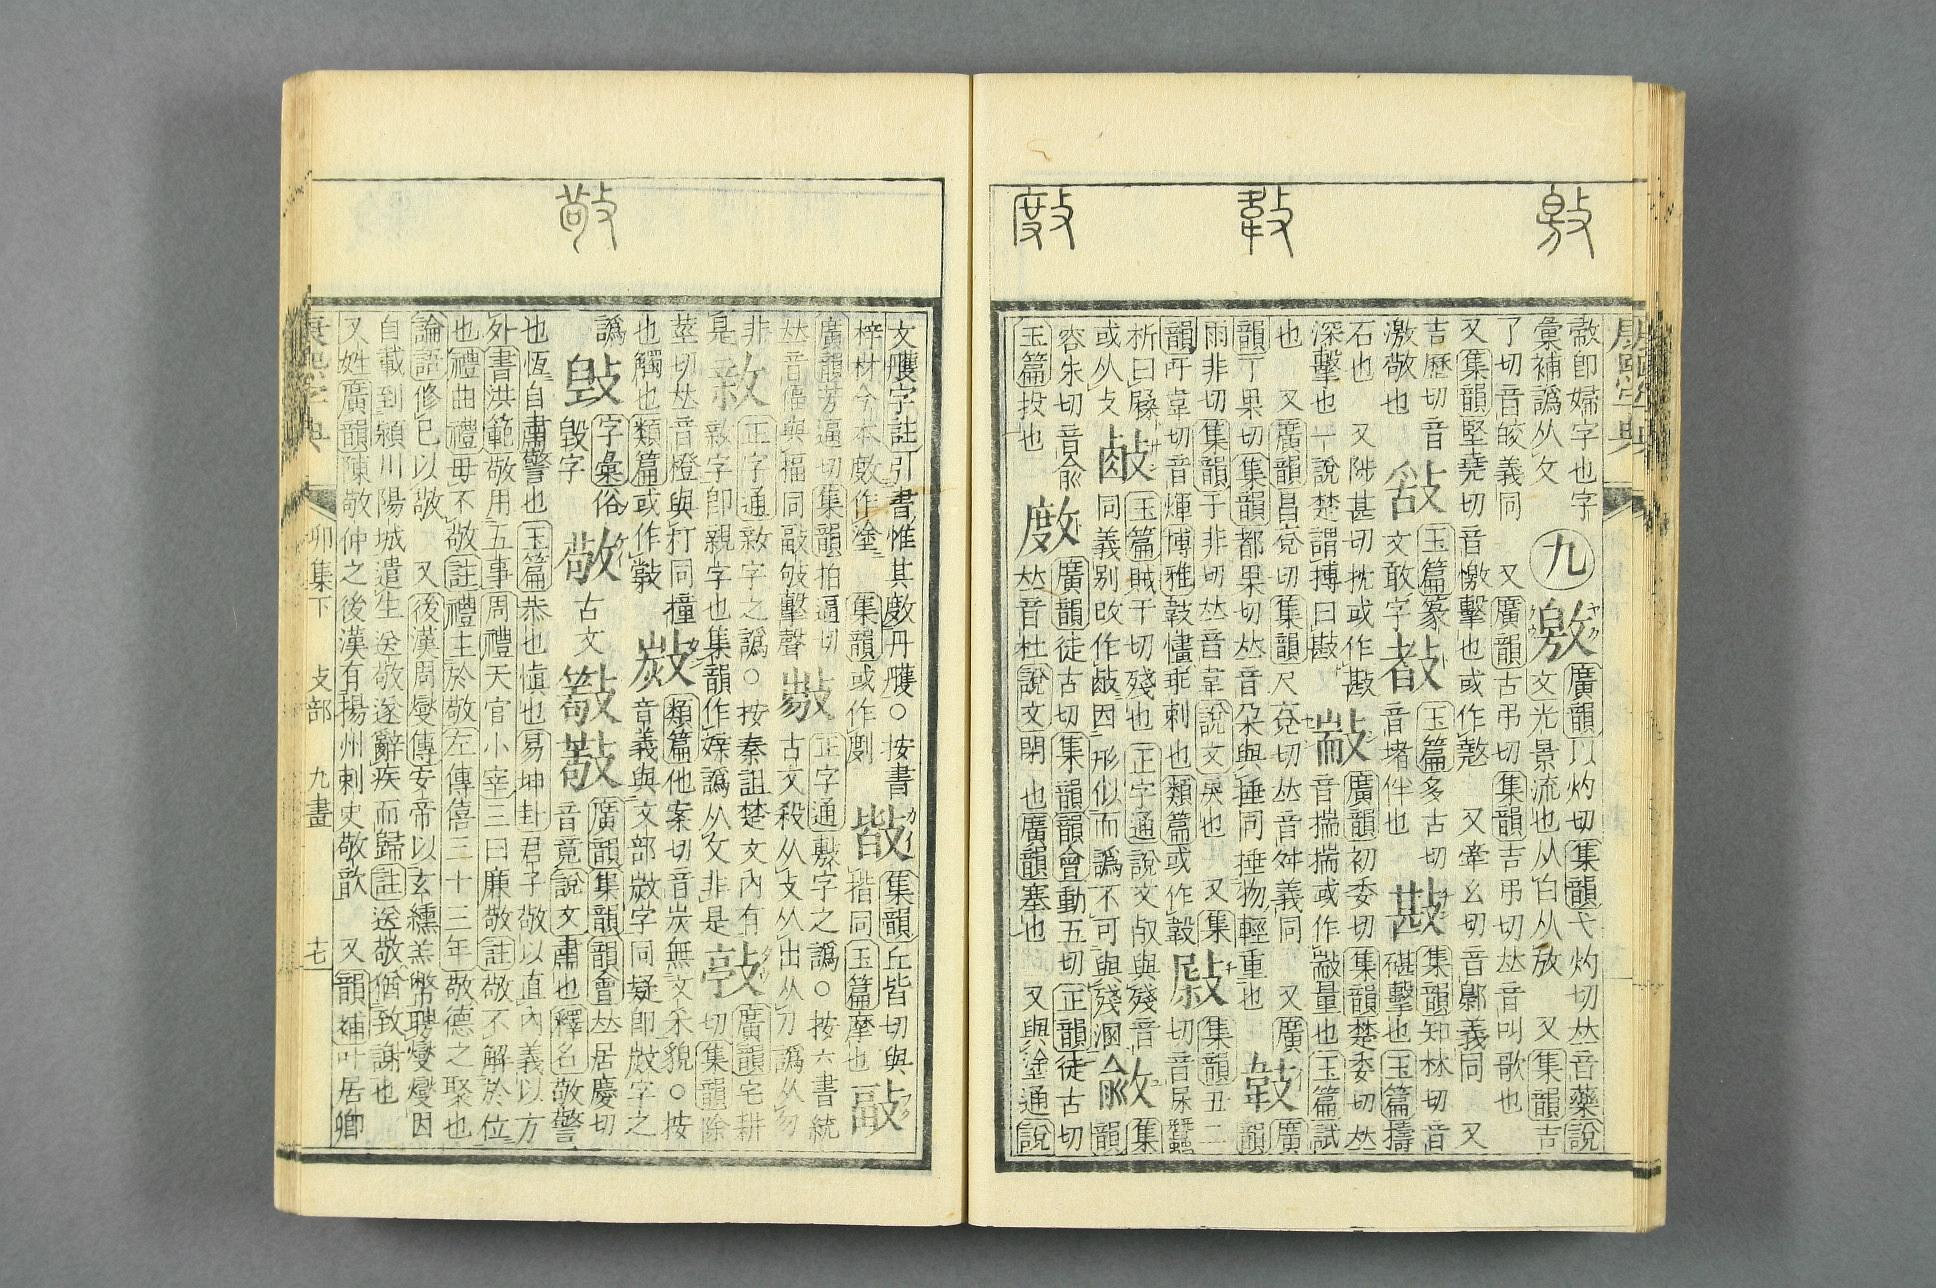 敫
𢾁
㪢
敬
康熙字典
彙補譌从攵
九
敫
廣韻以灼切集韻弋灼切𠀤音藥說
文光景流也从白从放　又集韻吉
了切音皎義同　又廣韻古弔切集韻吉弔切𠀤音叫歌也
又集韻堅堯切音憿擊也或作憿　又牽幺切音鄡義同　又
吉歷切音
激敬也
玉篇篆
文敢字
玉篇多古切
音堵伴也
集韻知林切音
碪擊也玉篇擣
石也　又陟甚切抌或作㪛
深擊也一說楚謂搏曰㪛
㪜
廣韻初委切集韻楚委切𠀤
音揣揣或作㪜量也玉篇試
也　又廣韻昌兗切集韻尺兗切𠀤音舛義同　又廣
韻丁果切集韻都果切𠀤音朵與捶同捶物輕重也
廣
韻
雨非切集韻于非切𠀤音韋說文戾也　又集
韻吁韋切音煇博雅
乖剌也類篇或作
集韻丑二
切音屎蠶
析曰
或从攴
玉篇賊干切殘也正字通說文㱚與殘音
同義别改作
因形似而譌不可與殘溷
集
韻
容朱切音俞
玉篇投也
㪢
廣韻徒古切集韻韻會動五切正韻徒古切
𠀤音杜說文閉也廣韻塞也　又與塗通說
文雘字註引書惟其㪢丹雘○按書
梓材今本㪢作塗　集韻或作剫
集韻丘皆切與
揩同玉篇摩也
廣韻芳逼切集韻拍逼切
𠀤音愊與揊同
擊聲
正字通
字之譌○按六書統
古文殺从攴从出从刀譌从勿
非
正字通敹字之譌○按秦詛楚文內有
是
字卽親字也集韻作
譌从攵非是
廣韻宅耕
切集韻除
莖切𠀤音橙與打同撞
也觸也類篇或作
類篇他案切音炭無文采貌○按
音義與文部
字同疑卽
字之
譌
字彙俗
毀字
敬
古文
廣韻集韻韻會𠀤居慶切
音竟說文肅也釋名敬警
也恆自肅警也玉篇恭也愼也易坤卦君子敬以直內義以方
外書洪範敬用五事周禮天官小宰三曰廉敬註敬不解於位
也禮曲禮毋不敬註禮主於敬左傳僖三十三年敬德之聚也
論語修己以敬　又後漢周燮傳安帝以玄纁羔幣聘燮燮因
自載到潁川陽城遣生送敬遂辭疾而歸註送敬猶致謝也
又姓廣韻陳敬仲之後漢有揚州刺史敬歆　又韻補叶居卿
康熙字典
卯集下
攴部
九畫
十七